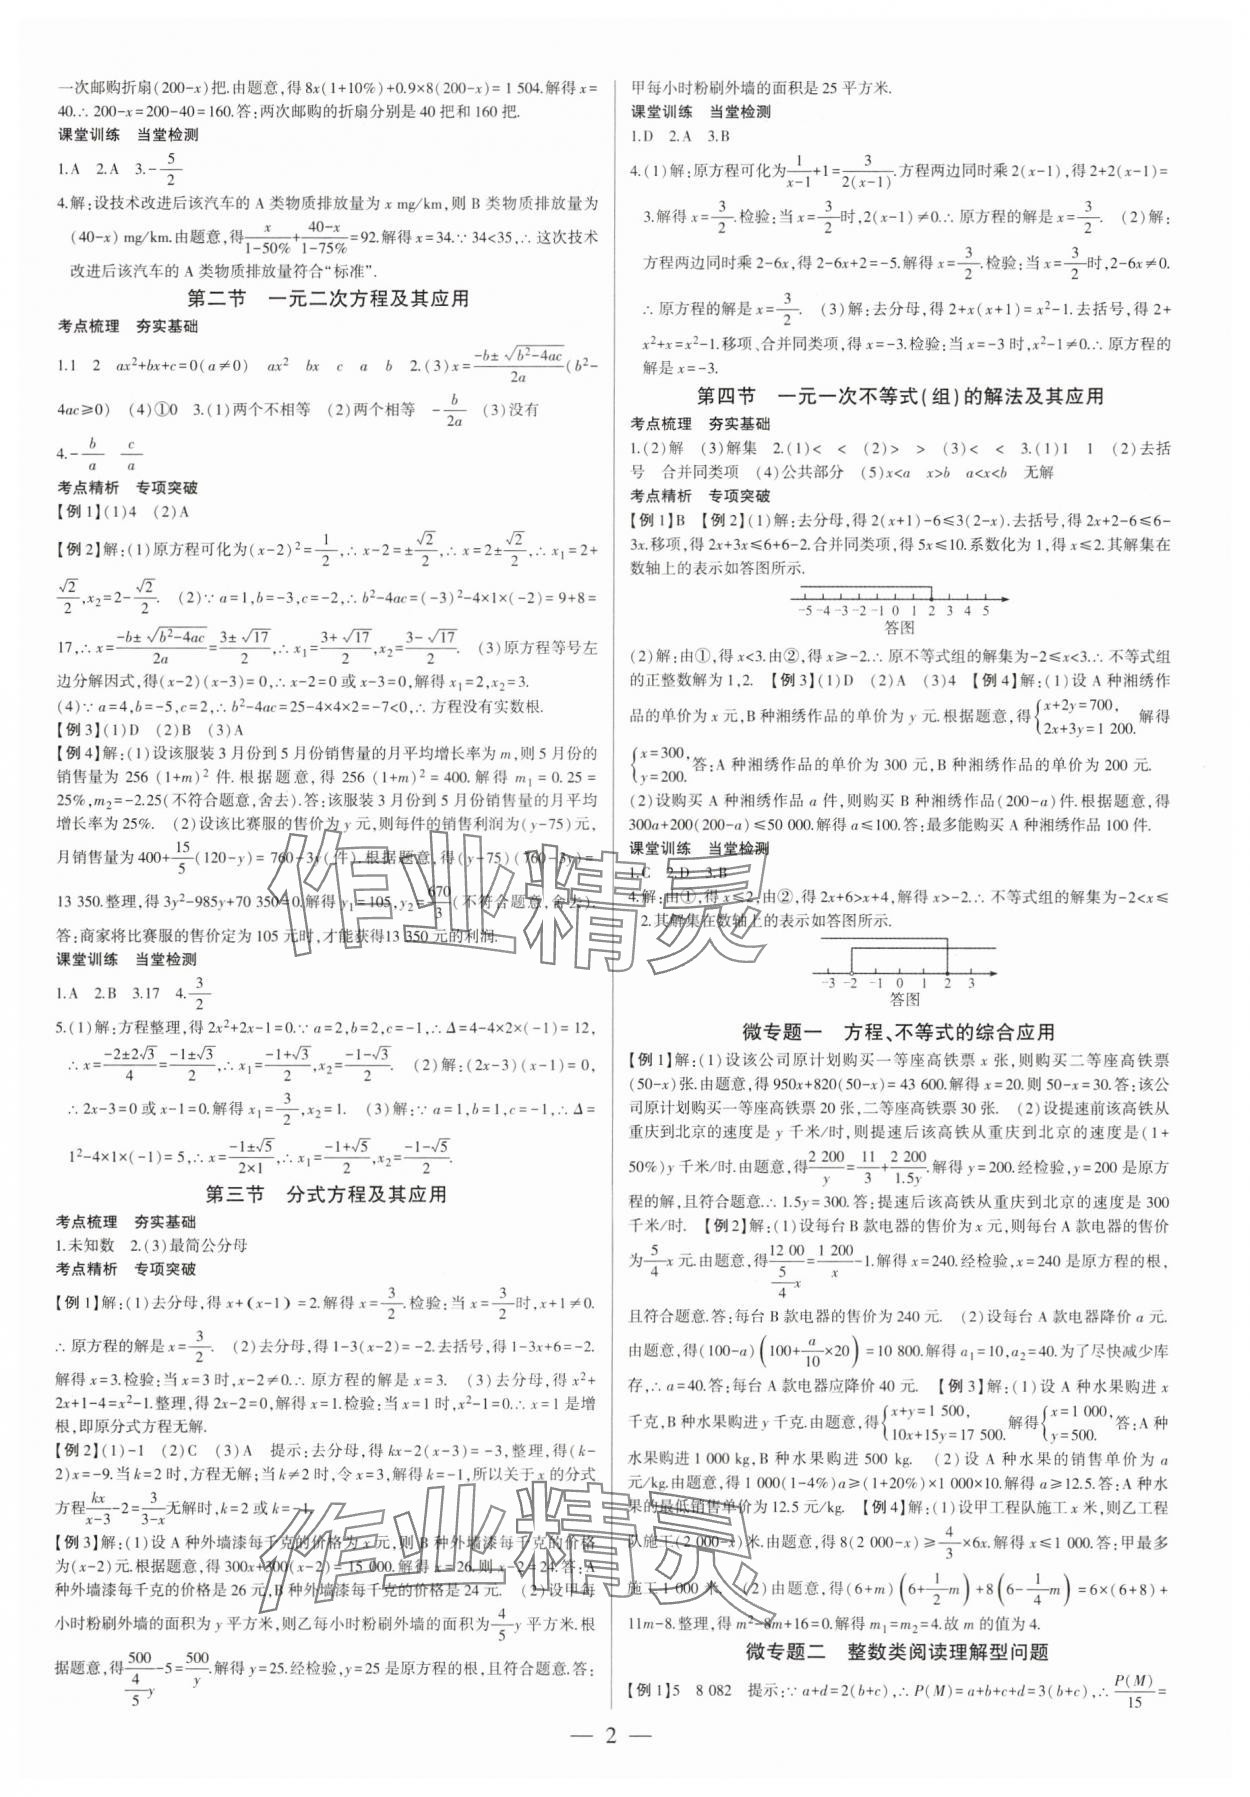 一次邮购折扇(200-x)把.由题意,得8x(1+10%)+0.9×8(200-x)=1 504.解得x=
40.∴200-x=200-40=160.答:两次邮购的折扇分别是40把和160把.
课堂训练 当堂检测
1.A 2.A 3.-5/2
4.解:设技术改进后该汽车的A类物质排放量为x mg/km,则B类物质排放量为
(40-x) mg/km.由题意,得x/(1-50%)+(40-x)/(1-75%)=92.解得x=34.∵34<35,∴这次技术
改进后该汽车的A类物质排放量符合“标准”.
第二节 一元二次方程及其应用
考点梳理 夯实基础
1.1 2 ax²+bx+c=0(a≠0) ax² bx c a b 2.(3)x=(-b±√(b²-4ac))/2a(b²-
4ac≥0) (4)①0 3.(1)两个不相等 (2)两个相等 -b/2a (3)没有
4.-b/a c/a
考点精析 专项突破
【例1】(1)4 (2)A
【例2】解:(1)原方程可化为(x-2)²=1/2,∴x-2=±√2/2,∴x=2±√2/2,∴x₁=2+
√2/2,x₂=2-√2/2. (2)∵a=1,b=-3,c=-2,∴b²-4ac=(-3)²-4×1×(-2)=9+8=
17,∴x=(-b±√(b²-4ac))/2a=(3±√17)/2,∴x₁=(3+√17)/2,x₂=(3-√17)/2. (3)原方程等号左
边分解因式,得(x-2)(x-3)=0,∴x-2=0或x-3=0.解得x₁=2,x₂=3.
(4)∵a=4,b=-5,c=2,∴b²-4ac=25-4×4×2=-7<0,∴方程没有实数根.
【例3】(1)D (2)B (3)A
【例4】解:(1)设该服装3月份到5月份销售量的月平均增长率为m,则5月份的
销售量为256(1+m)²件.根据题意,得256(1+m)²=400.解得m₁=0.25=
25%,m₂=-2.25(不符合题意,舍去).答:该服装3月份到5月份销售量的月平均
增长率为25%. (2)设该比赛服的售价为y元,则每件的销售利润为(y-75)元,
月销售量为400+15/5(120-y)=760-3y(件).根据题意,得(y-75)(760-3y)=
13 350.整理,得3y²-985y+70 350=0.解得y₁=105,y₂=670/3(不符合题意,舍去).
答:商家将比赛服的售价定为105元时,才能获得13 350元的利润.
课堂训练 当堂检测
1.A 2.B 3.17 4.3/2
5.(1)解:方程整理,得2x²+2x-1=0.∵a=2,b=2,c=-1,∴Δ=4-4×2×(-1)=12,
∴x=(-2±2√3)/4=(-1±√3)/2,∴x₁=(-1+√3)/2,x₂=(-1-√3)/2. (2)解:(2x-3)(x-1)=0,
∴2x-3=0或x-1=0.解得x₁=3/2,x₂=1. (3)解:∵a=1,b=1,c=-1,∴Δ=
1²-4×1×(-1)=5,∴x=(-1±√5)/(2×1),∴x₁=(-1+√5)/2,x₂=(-1-√5)/2.
第三节 分式方程及其应用
考点梳理 夯实基础
1.未知数 2.(3)最简公分母
考点精析 专项突破
【例1】解:(1)去分母,得x+(x-1)=2.解得x=3/2.检验:当x=3/2时,x+1≠0.
∴原方程的解是x=3/2. (2)去分母,得1-3(x-2)=-2.去括号,得1-3x+6=-2.
解得x=3.检验:当x=3时,x-2≠0.∴原方程的解是x=3. (3)去分母,得x²+
2x+1-4=x²-1.整理,得2x-2=0,解得x=1.检验:当x=1时,x²-1=0.∴x=1是增
根,即原分式方程无解.
【例2】(1)-1 (2)C (3)A 提示:去分母,得kx-2(x-3)=-3,整理,得(k-
2)x=-9.当k=2时,方程无解;当k≠2时,令x=3,解得k=-1,所以关于x的分式
方程kx/(x-3)-2=3/(3-x)无解时,k=2或k=-1.
【例3】解:(1)设A种外墙漆每千克的价格为x元,则B种外墙漆每千克的价格
为(x-2)元.根据题意,得300x+300(x-2)=15 000.解得x=26.则x-2=24.答:A
种外墙漆每千克的价格是26元,B种外墙漆每千克的价格是24元. (2)设甲每
小时粉刷外墙的面积为y平方米,则乙每小时粉刷外墙的面积为4/5y平方米.根
据题意,得500/(4/5y)-5=500/y.解得y=25.经检验,y=25是原方程的根,且符合题意.答:
甲每小时粉刷外墙的面积是25平方米.
课堂训练 当堂检测
1.D 2.A 3.B
4.(1)解:原方程可化为1/(x-1)+1=3/(2(x-1)).方程两边同时乘2(x-1),得2+2(x-1)=
3.解得x=3/2.检验:当x=3/2时,2(x-1)≠0.∴原方程的解是x=3/2. (2)解:
方程两边同时乘2-6x,得2-6x+2=-5.解得x=3/2.检验:当x=3/2时,2-6x≠0.
∴原方程的解是x=3/2. (3)解:去分母,得2+x(x+1)=x²-1.去括号,得2+
x²+x=x²-1.移项、合并同类项,得x=-3.检验:当x=-3时,x²-1≠0.∴原方程的
解是x=-3.
第四节 一元一次不等式(组)的解法及其应用
考点梳理 夯实基础
1.(2)解 (3)解集 2.(1)< < (2)> > (3)< < 3.(1)1 1 (2)去括
号 合并同类项 (4)公共部分 (5)x<a x>b a<x<b 无解
考点精析 专项突破
【例1】B 【例2】(1)解:去分母,得2(x+1)-6≤3(2-x).去括号,得2x+2-6≤6-
3x.移项,得2x+3x≤6+6-2.合并同类项,得5x≤10.系数化为1,得x≤2.其解集在
数轴上的表示如答图所示.
-5 -4 -3 -2 -1 0 1 2 3 4 5
答图
(2)解:由①,得x<3.由②,得x≥-2.∴原不等式组的解集为-2≤x<3.∴不等式组
的正整数解为1,2. 【例3】(1)D (2)A (3)4 【例4】解:(1)设A种湘绣作
品的单价为x元,B种湘绣作品的单价为y元.根据题意,得{x+2y=700,2x+3y=1 200.解得
{x=300,y=200.答:A种湘绣作品的单价为300元,B种湘绣作品的单价为200元.
(2)设购买A种湘绣作品a件,则购买B种湘绣作品(200-a)件.根据题意,得
300a+200(200-a)≤50 000.解得a≤100.答:最多能购买A种湘绣作品100件.
课堂训练 当堂检测
1.C 2.D 3.B
4.解:由①,得x≤2.由②,得2x+6>x+4,解得x>-2.∴不等式组的解集为-2<x≤
2.其解集在数轴上的表示如答图所示.
-3 -2 -1 0 1 2 3
答图
微专题一 方程、不等式的综合应用
【例1】解:(1)设该公司原计划购买一等座高铁票x张,则购买二等座高铁票
(50-x)张.由题意,得950x+820(50-x)=43 600.解得x=20.则50-x=30.答:该公
司原计划购买一等座高铁票20张,二等座高铁票30张. (2)设提速前该高铁从
重庆到北京的速度是y千米/时,则提速后该高铁从重庆到北京的速度是(1+
50%)y千米/时.由题意,得2 200/y=11/3+2 200/1.5y.解得y=200.经检验,y=200是原方
程的解,且符合题意.∴1.5y=300.答:提速后该高铁从重庆到北京的速度是300
千米/时. 【例2】解:(1)设每台B款电器的售价为x元,则每台A款电器的售价
为5/4x元.由题意,得12 00/(5/4x)=1 200/x-1.解得x=240.经检验,x=240是原方程的根,
且符合题意.答:每台B款电器的售价为240元. (2)设每台A款电器降价a元.
由题意,得(100-a)(100+a/10×20)=10 800.解得a₁=10,a₂=40.为了尽快减少库
存,∴a=40.答:每台A款电器应降价40元. 【例3】解:(1)设A种水果购进x
千克,B种水果购进y千克.由题意,得{x+y=1 500,10x+15y=17 500.解得{x=1 000,y=500.答:A种
水果购进1 000 kg,B种水果购进500 kg. (2)设A种水果的销售单价为a
元/kg.由题意,得1 000(1-4%)a≥(1+20%)×1 000×10.解得a≥12.5.答:A种水
果的最低销售单价为12.5元/kg. 【例4】解:(1)设甲工程队施工x米,则乙工程
队施工(2 000-x)米.由题意,得8(2 000-x)≥4/3×6x.解得x≤1 000.答:甲最多
施工1 000米. (2)由题意,得(6+m)(6+1/2m)+8(6-1/4m)=6×(6+8)+
11m-8.整理,得m²-8m+16=0.解得m₁=m₂=4.故m的值为4.
微专题二 整数类阅读理解型问题
【例1】5 8 082 提示:∵a+d=2(b+c),∴P(M)=a+b+c+d=3(b+c),∴P(M)/15=
— 2 —
作业精灵
作业精灵